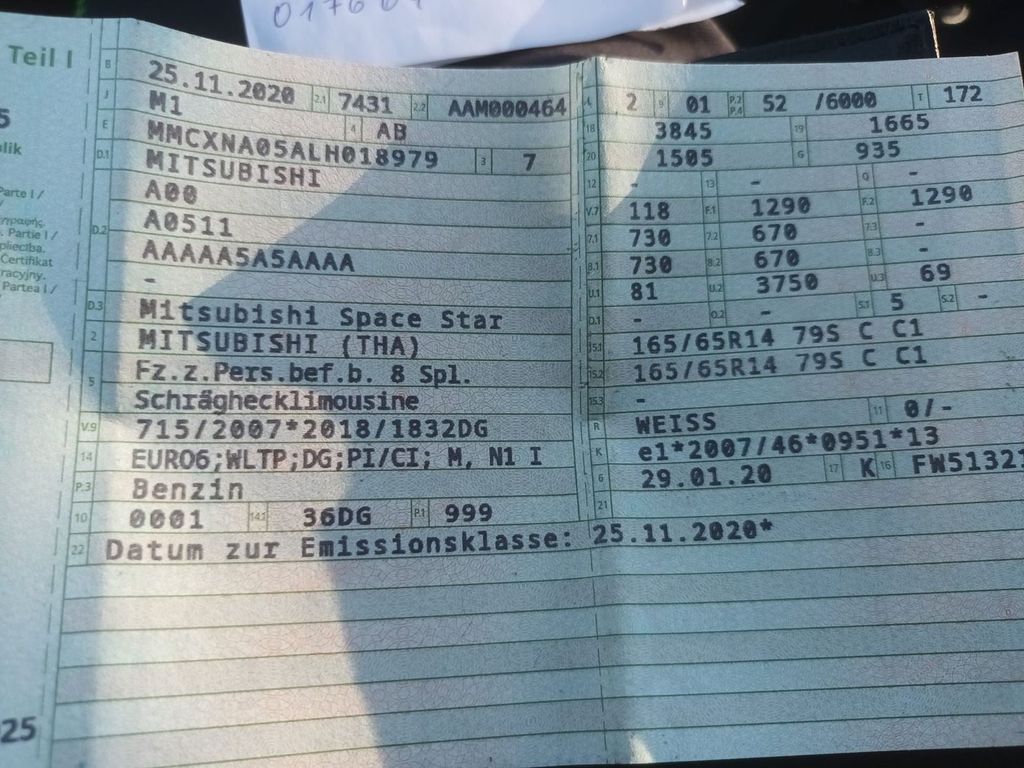 017601
Teil I
5
lik
Parte I /
Partie I /
pliecība.
Certifikat
racyjny.
Partea I /
25
B 25.11.2020 2.1 7431 2.2 AAM000464
J M1 4 AB
E MMCXNA05ALH018979 3 7
D.1 MITSUBISHI
A00
D.2 A0511
AAAAA5A5AAAA
-
D.3 Mitsubishi Space Star
2 MITSUBISHI (THA)
5 Fz.z.Pers.bef.b. 8 Spl.
Schräghecklimousine
V.9 715/2007*2018/1832DG
14 EURO6;WLTP;DG;PI/CI; M, N1 I
P.3 Benzin
10 0001 14.1 36DG P.1 999
22 Datum zur Emissionsklasse: 25.11.2020*
L 2 9 01 P.2 P.4 52 /6000 T 172
18 3845 19 1665
20 1505 G 935
12 - 13 - Q -
V.7 118 F.1 1290 F.2 1290
7.1 730 7.2 670 7.3 -
8.1 730 8.2 670 8.3 -
U.1 81 U.2 3750 U.3 69
O.1 - O.2 - S.1 5 S.2 -
15.1 165/65R14 79S C C1
15.2 165/65R14 79S C C1
15.3 -
R WEISS 11 0/-
K e1*2007/46*0951*13
6 29.01.20 17 K 16 FW51321
21